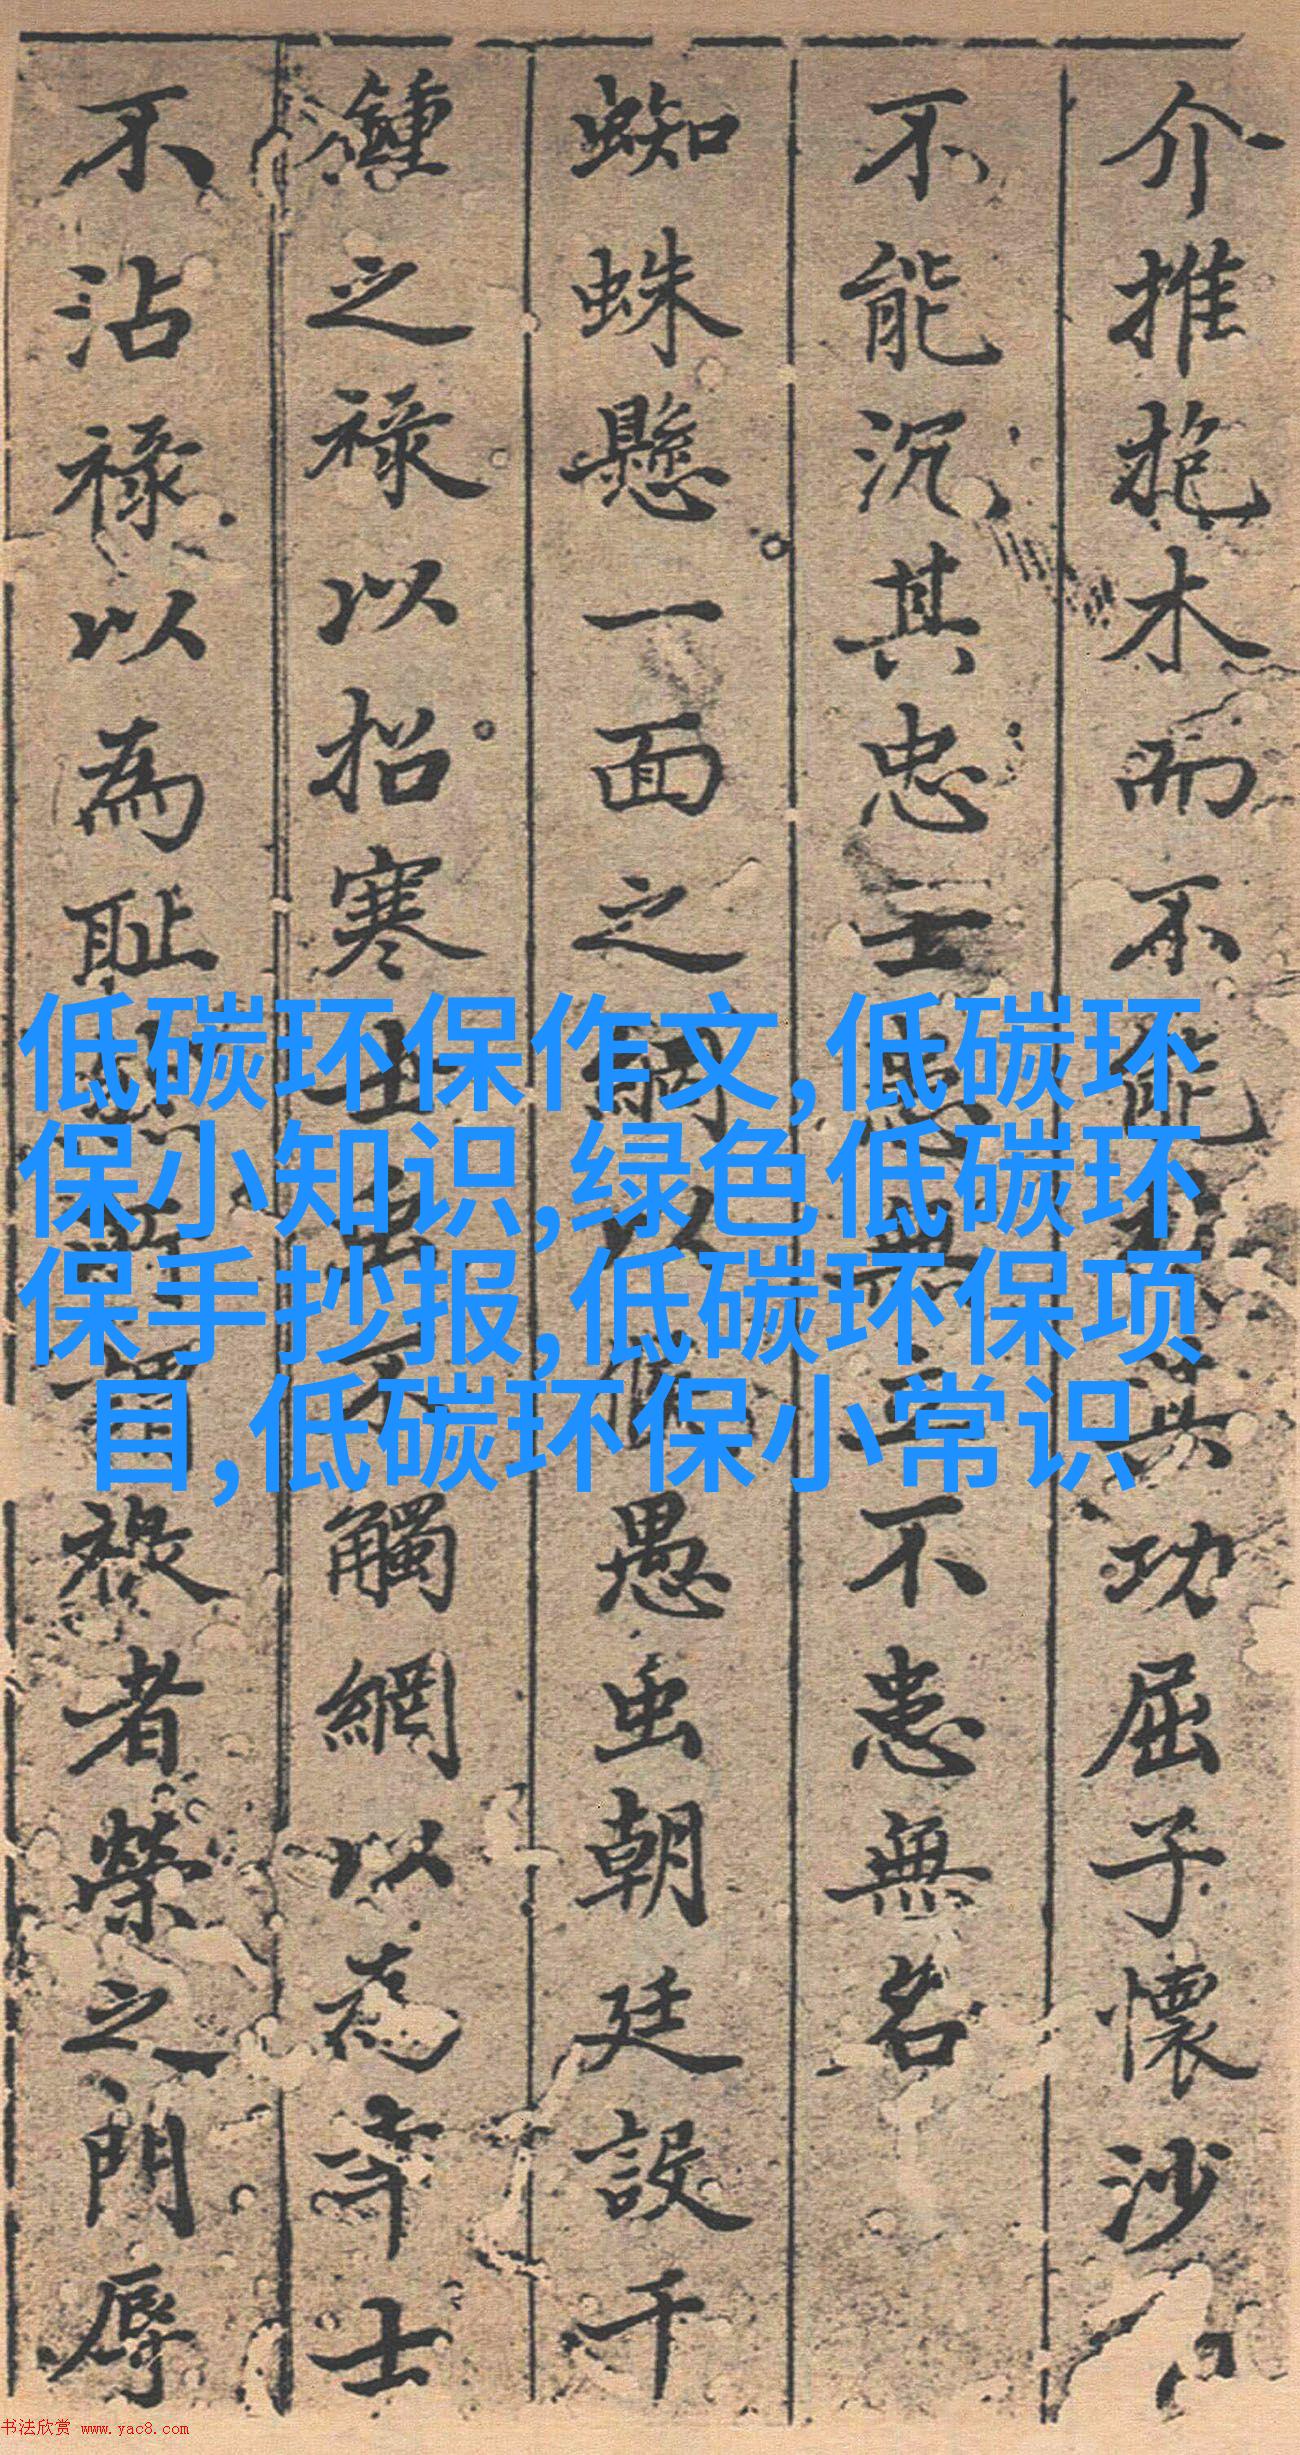 介推抱木而不能私其功屈子懷沙
不能沉其忠士患無立不患無名
蜘蛛懸一面之網以愚虫朝廷設千
鍾之祿以招寒士虫不觸網以為士
不沾祿以為耻祿者榮之門辱
低碳环保作文,低碳环
保小知识,绿色低碳环
保手抄报,低碳环保项
目,低碳环保小常识
书法欣赏 www.yac8.com